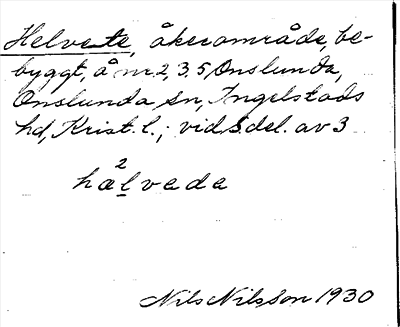 Helvete, åkerområde, be-
byggt, å nr 2, 3, 5 Onslunda,
Onslunda sn, Ingelstads
hd, Krist. l.; vid S del. av 3
2
hælvade
Nils Nilsson 1930